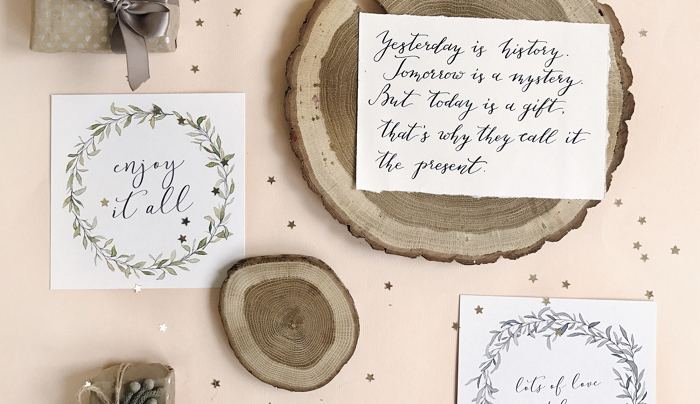 Yesterday is history.
Tomorrow is a mystery.
But today is a gift,
that's why they call it
the present.
enjoy
it all
lots of love